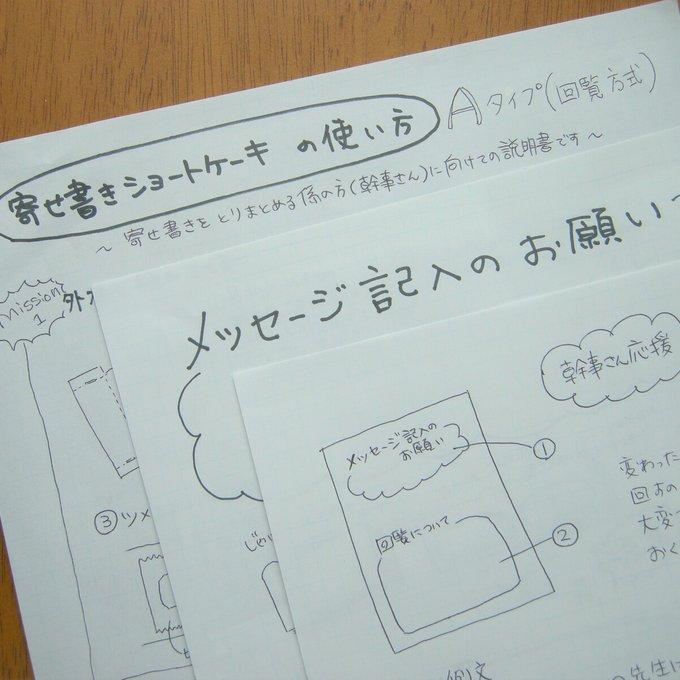 寄せ書きショートケーキ の使い方
Aタイプ(回覧方式)
～ 寄せ書きを とりまとめる係の方(幹事さん)に向けての説明書です～
mission
1
メッセージ記入の お願い
幹事さん応援
メッセージ記入の
お願い
①
回覧について
②
変わった
大変
おく
③ツメ
例文